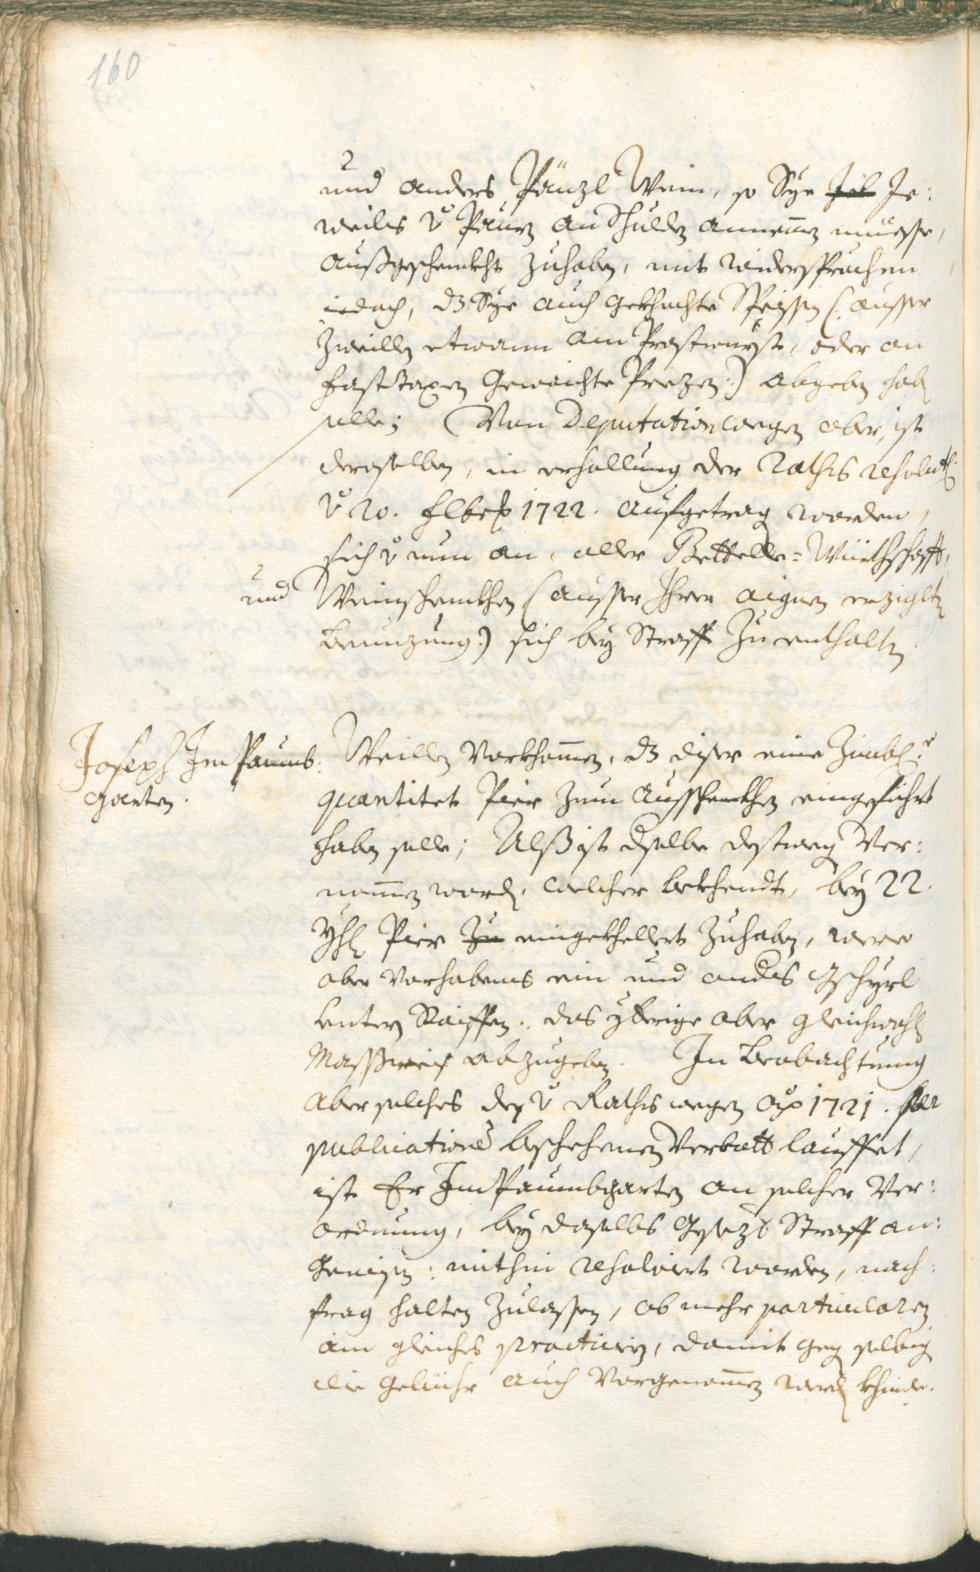 160
und anders Pänzl Wein, so Sye Je:
weils v Paurn an Schulden annemen müesse,
außgeschenkht zuhaben, mit widersprechen
iedoch, dz Sye auch gekhochte Speisen (: ausser
zweillen etwann ain Prostwurst, oder an
Fasttagen geweichte Prezen :) abgeben haben
solle; Von Deputation wegen aber, ist
derselben, in erhollung der Raths resolution
v 20. Febr. 1722. aufgetragen worden,
sich v nun an, aller Bettelle=Würthschafft,
und Weinschenkhen (ausser Ihrer aignen erziglten
Braunzung :) sich bey Straff zu enthalten
Joseph Im Paumb:
garten.
Weillen Vorkhomen, dz diser eine Zimbl:
quantitet Pier zum Ausschenkhen eingefiehrt
haben solle; Alß ist dselbe destwegen Ver:
nomen worden, welcher bekhendt, bey 22.
Yhrn Pier zu eingekhellert zuhaben, were
aber Vorhabens ein und anders Gschyrl
unter Raiffen, das ybrige aber gleichwohl
Massweis abzugeben. In Beobachtung
aber solches dem v Raths wegen ao 1721. per
publicationem beschehenen Verbott lauffet,
ist Er Im Paumbgarten an solcher Ver:
ordnung, bey daselbs gesezter Straff an:
gewisen: mithin resolviert worden, nach:
frag halten zulassen, ob mehr particularn
ain gleiches practiciern, damit gegen selbige
die gebühr auch Vorgenomen werden khinde.